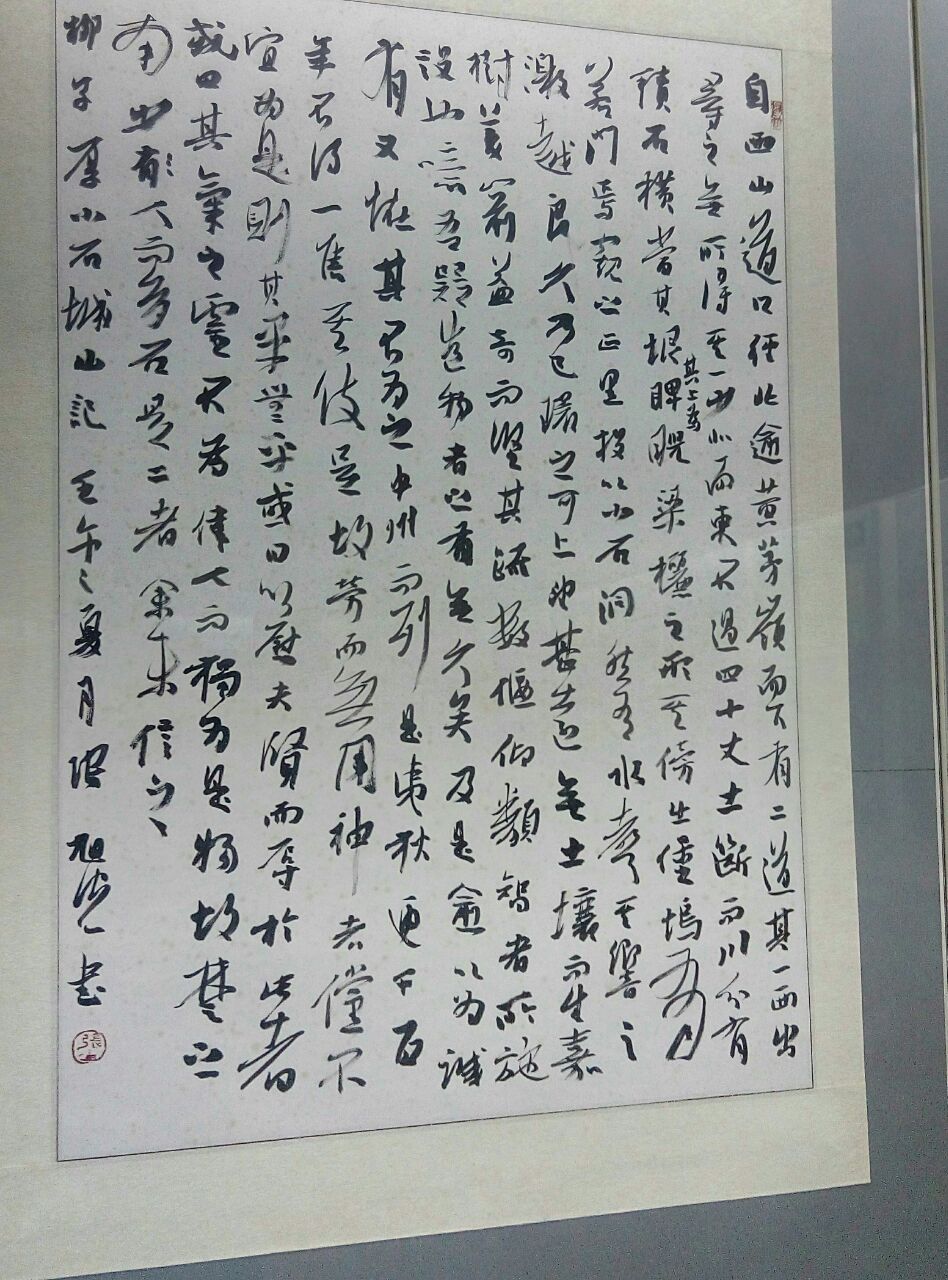 自西山道口徑北逾黃茅嶺而下有二道其一西出
尋之無所得其一少北而東不過四十丈土斷而川分有
積石橫當其垠其上為睥睨梁欐之形其傍出堡塢有
若門焉窺之正黑投以小石洞然有水聲其響之
激越良久乃已環之可上望甚遠無土壤而生嘉
樹美箭益奇而堅其疏數偃仰類智者所施
設也噫吾疑造物者之有無久矣及是愈以為誠
有又怪其不為之中州而列是夷狄更千百
年不得一售其伎是故勞而無用神者儻不
宜為是則其果無乎或曰以慰夫賢而辱於此者
或曰其氣之靈不為偉人而獨為是物故楚之
南少人而多石是二者余未信之
柳子厚小石城山記壬午之夏月張旭書